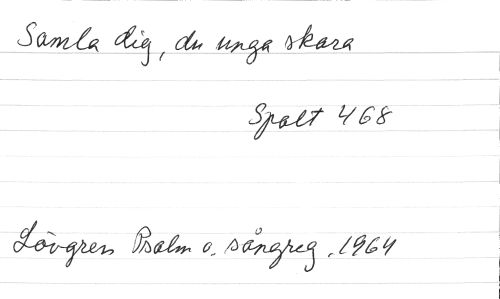 Samla dig, du unga skara
Spalt 468
Lövgren Psalm o. sångreg. 1964